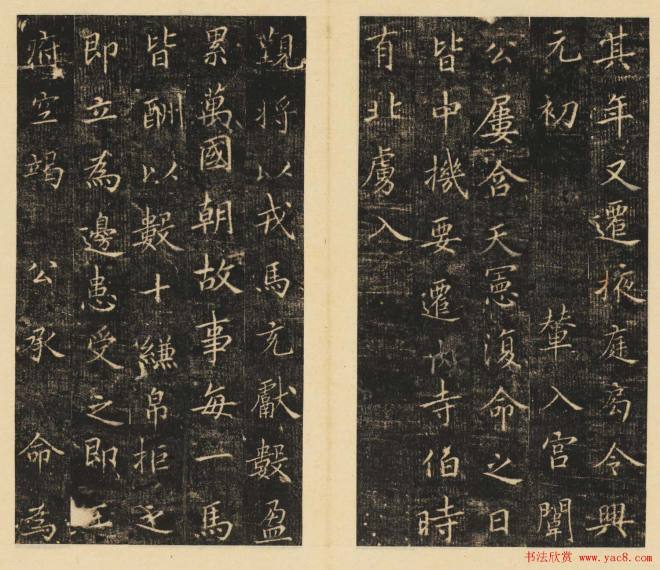 其年又遷掖庭局令興
元初 輦入宮闈
公屢含天憲復命之日
皆中機要遷內寺伯時
有北虜入
覲將以戎馬充獻數盈
累萬國朝故事每一馬
皆酬以數十縑帛拒之
即立為邊患受之即王
府空竭 公承命為
书法欣赏 www.yac8.com